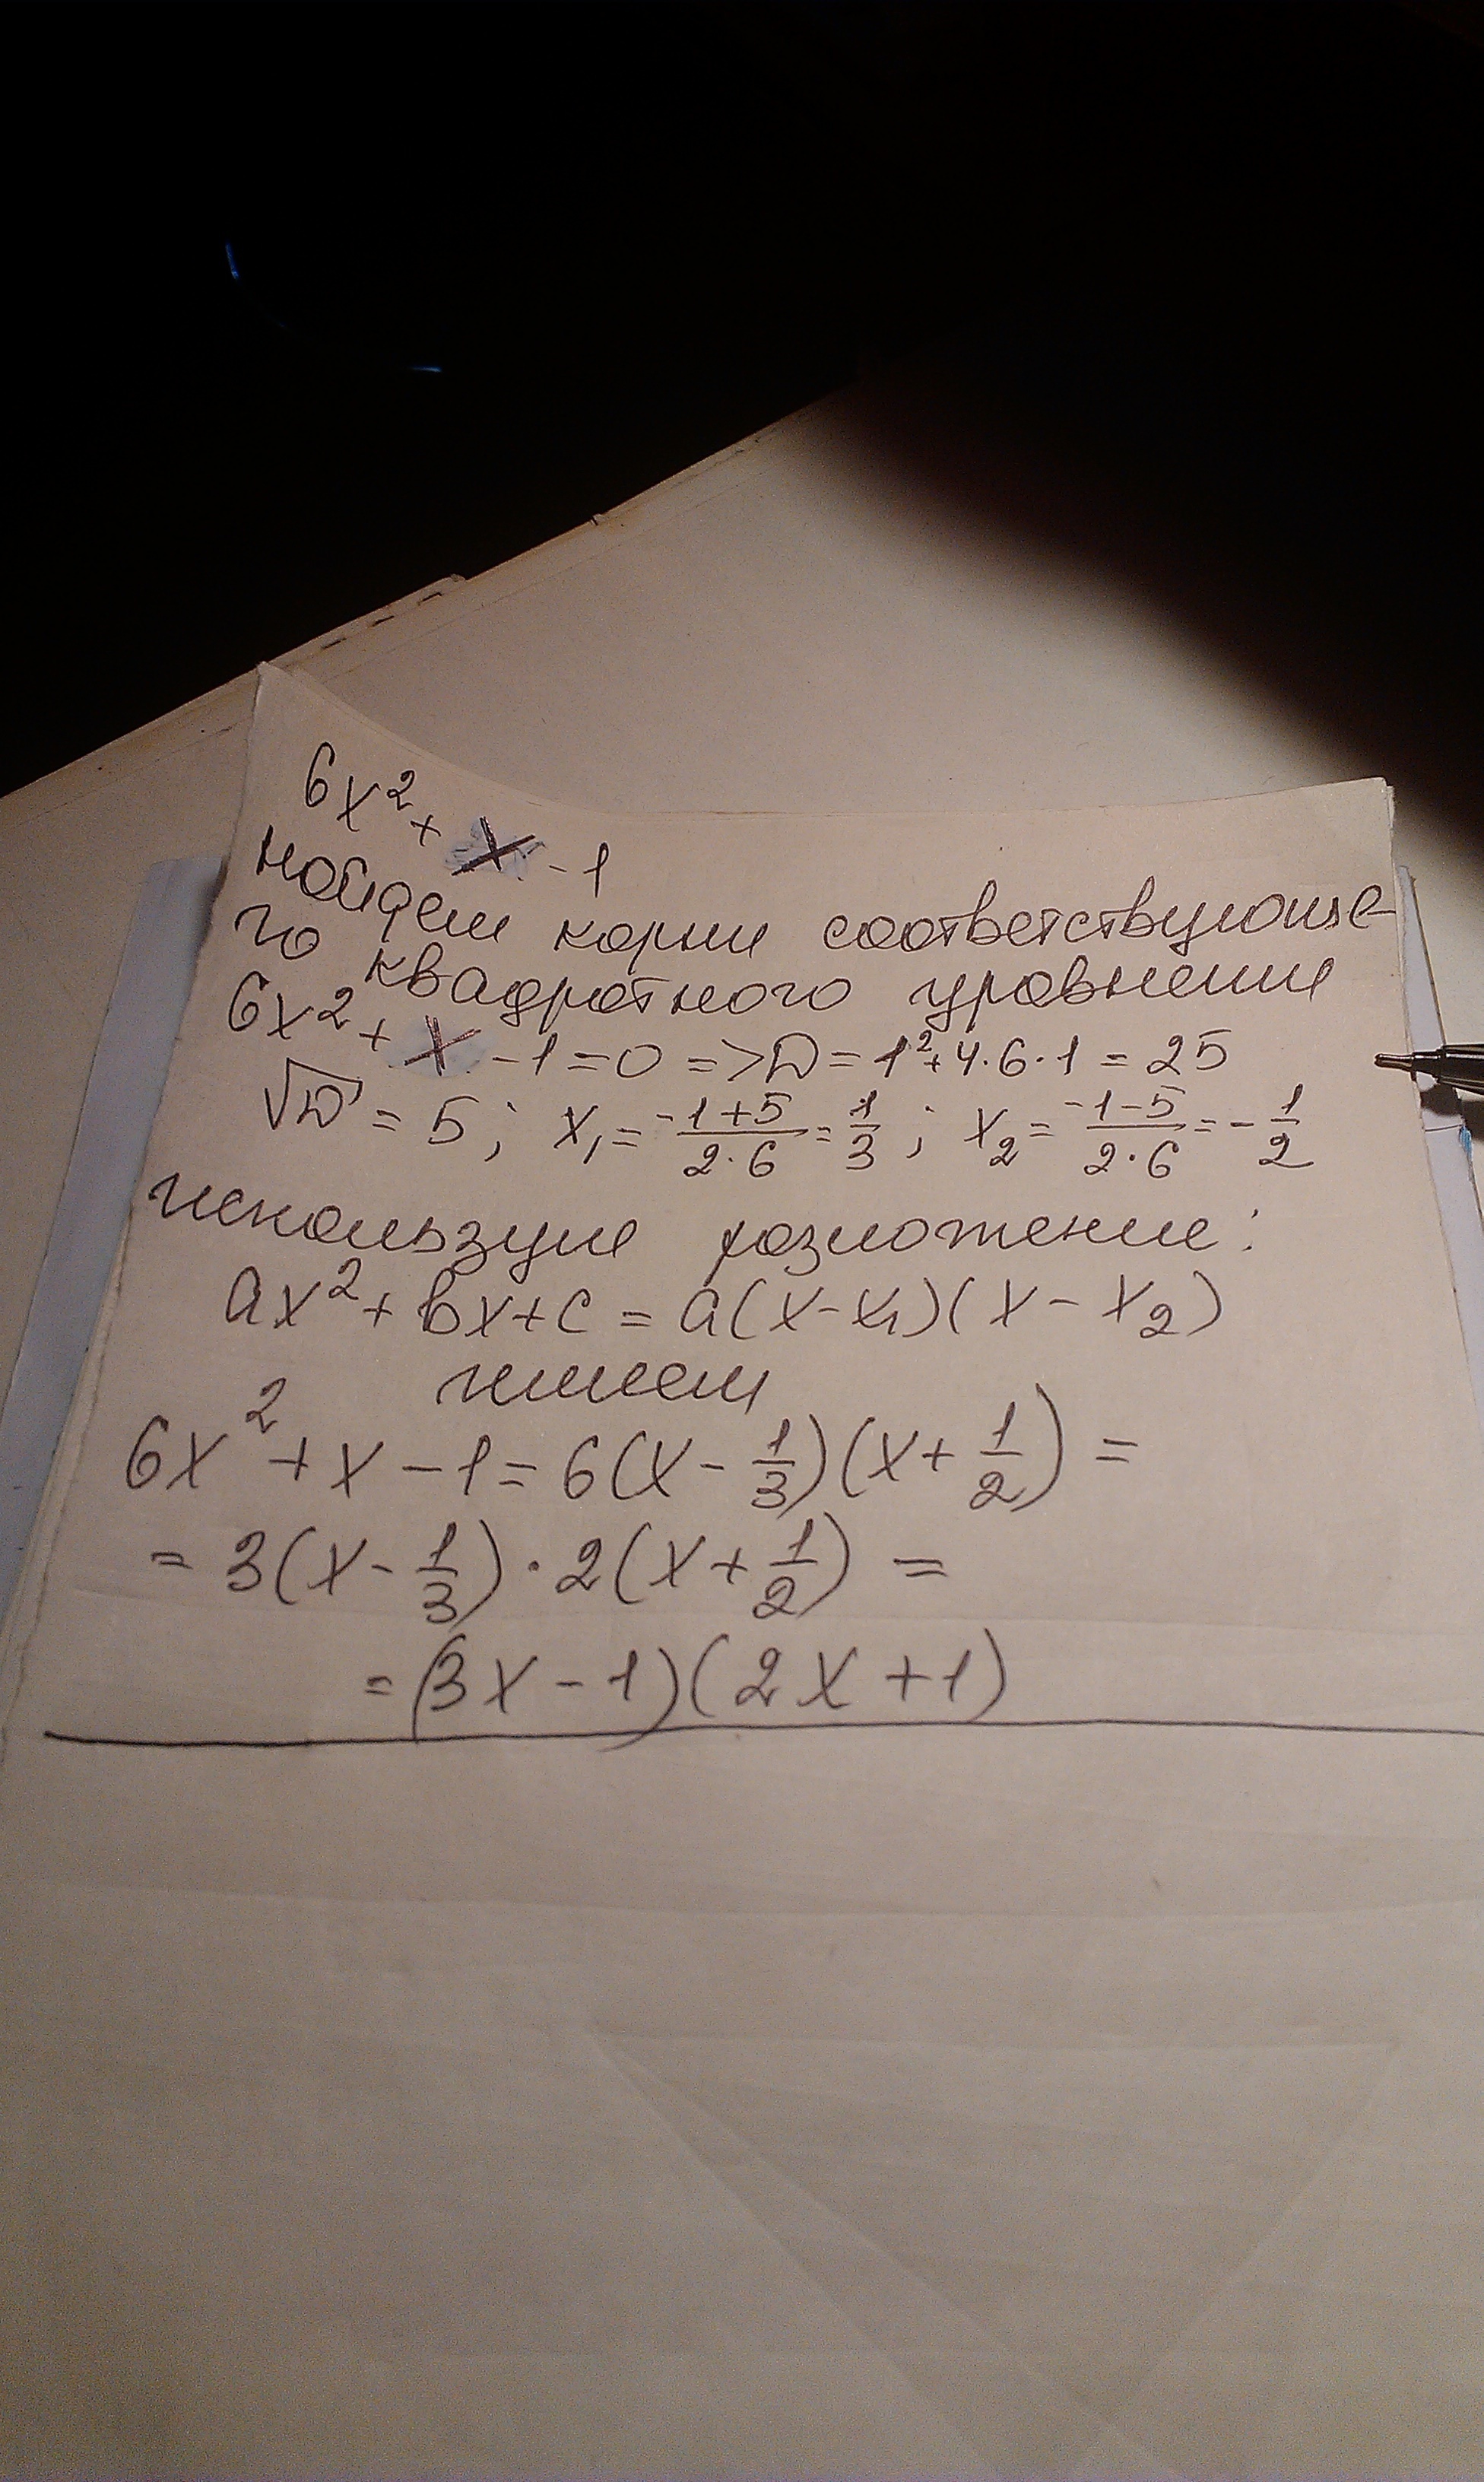 6x² + x - 1
найдем корни соответствующе-
го квадратного уравнения
6x² + x - 1 = 0 => D = 1² + 4·6·1 = 25
√D = 5; x₁ = (-1+5)/(2·6) = 1/3; x₂ = (-1-5)/(2·6) = -1/2
используя разложение:
ax² + bx + c = a(x - x₁)(x - x₂)
имеем
6x² + x - 1 = 6(x - 1/3)(x + 1/2) =
= 3(x - 1/3) · 2(x + 1/2) =
= (3x - 1)(2x + 1)